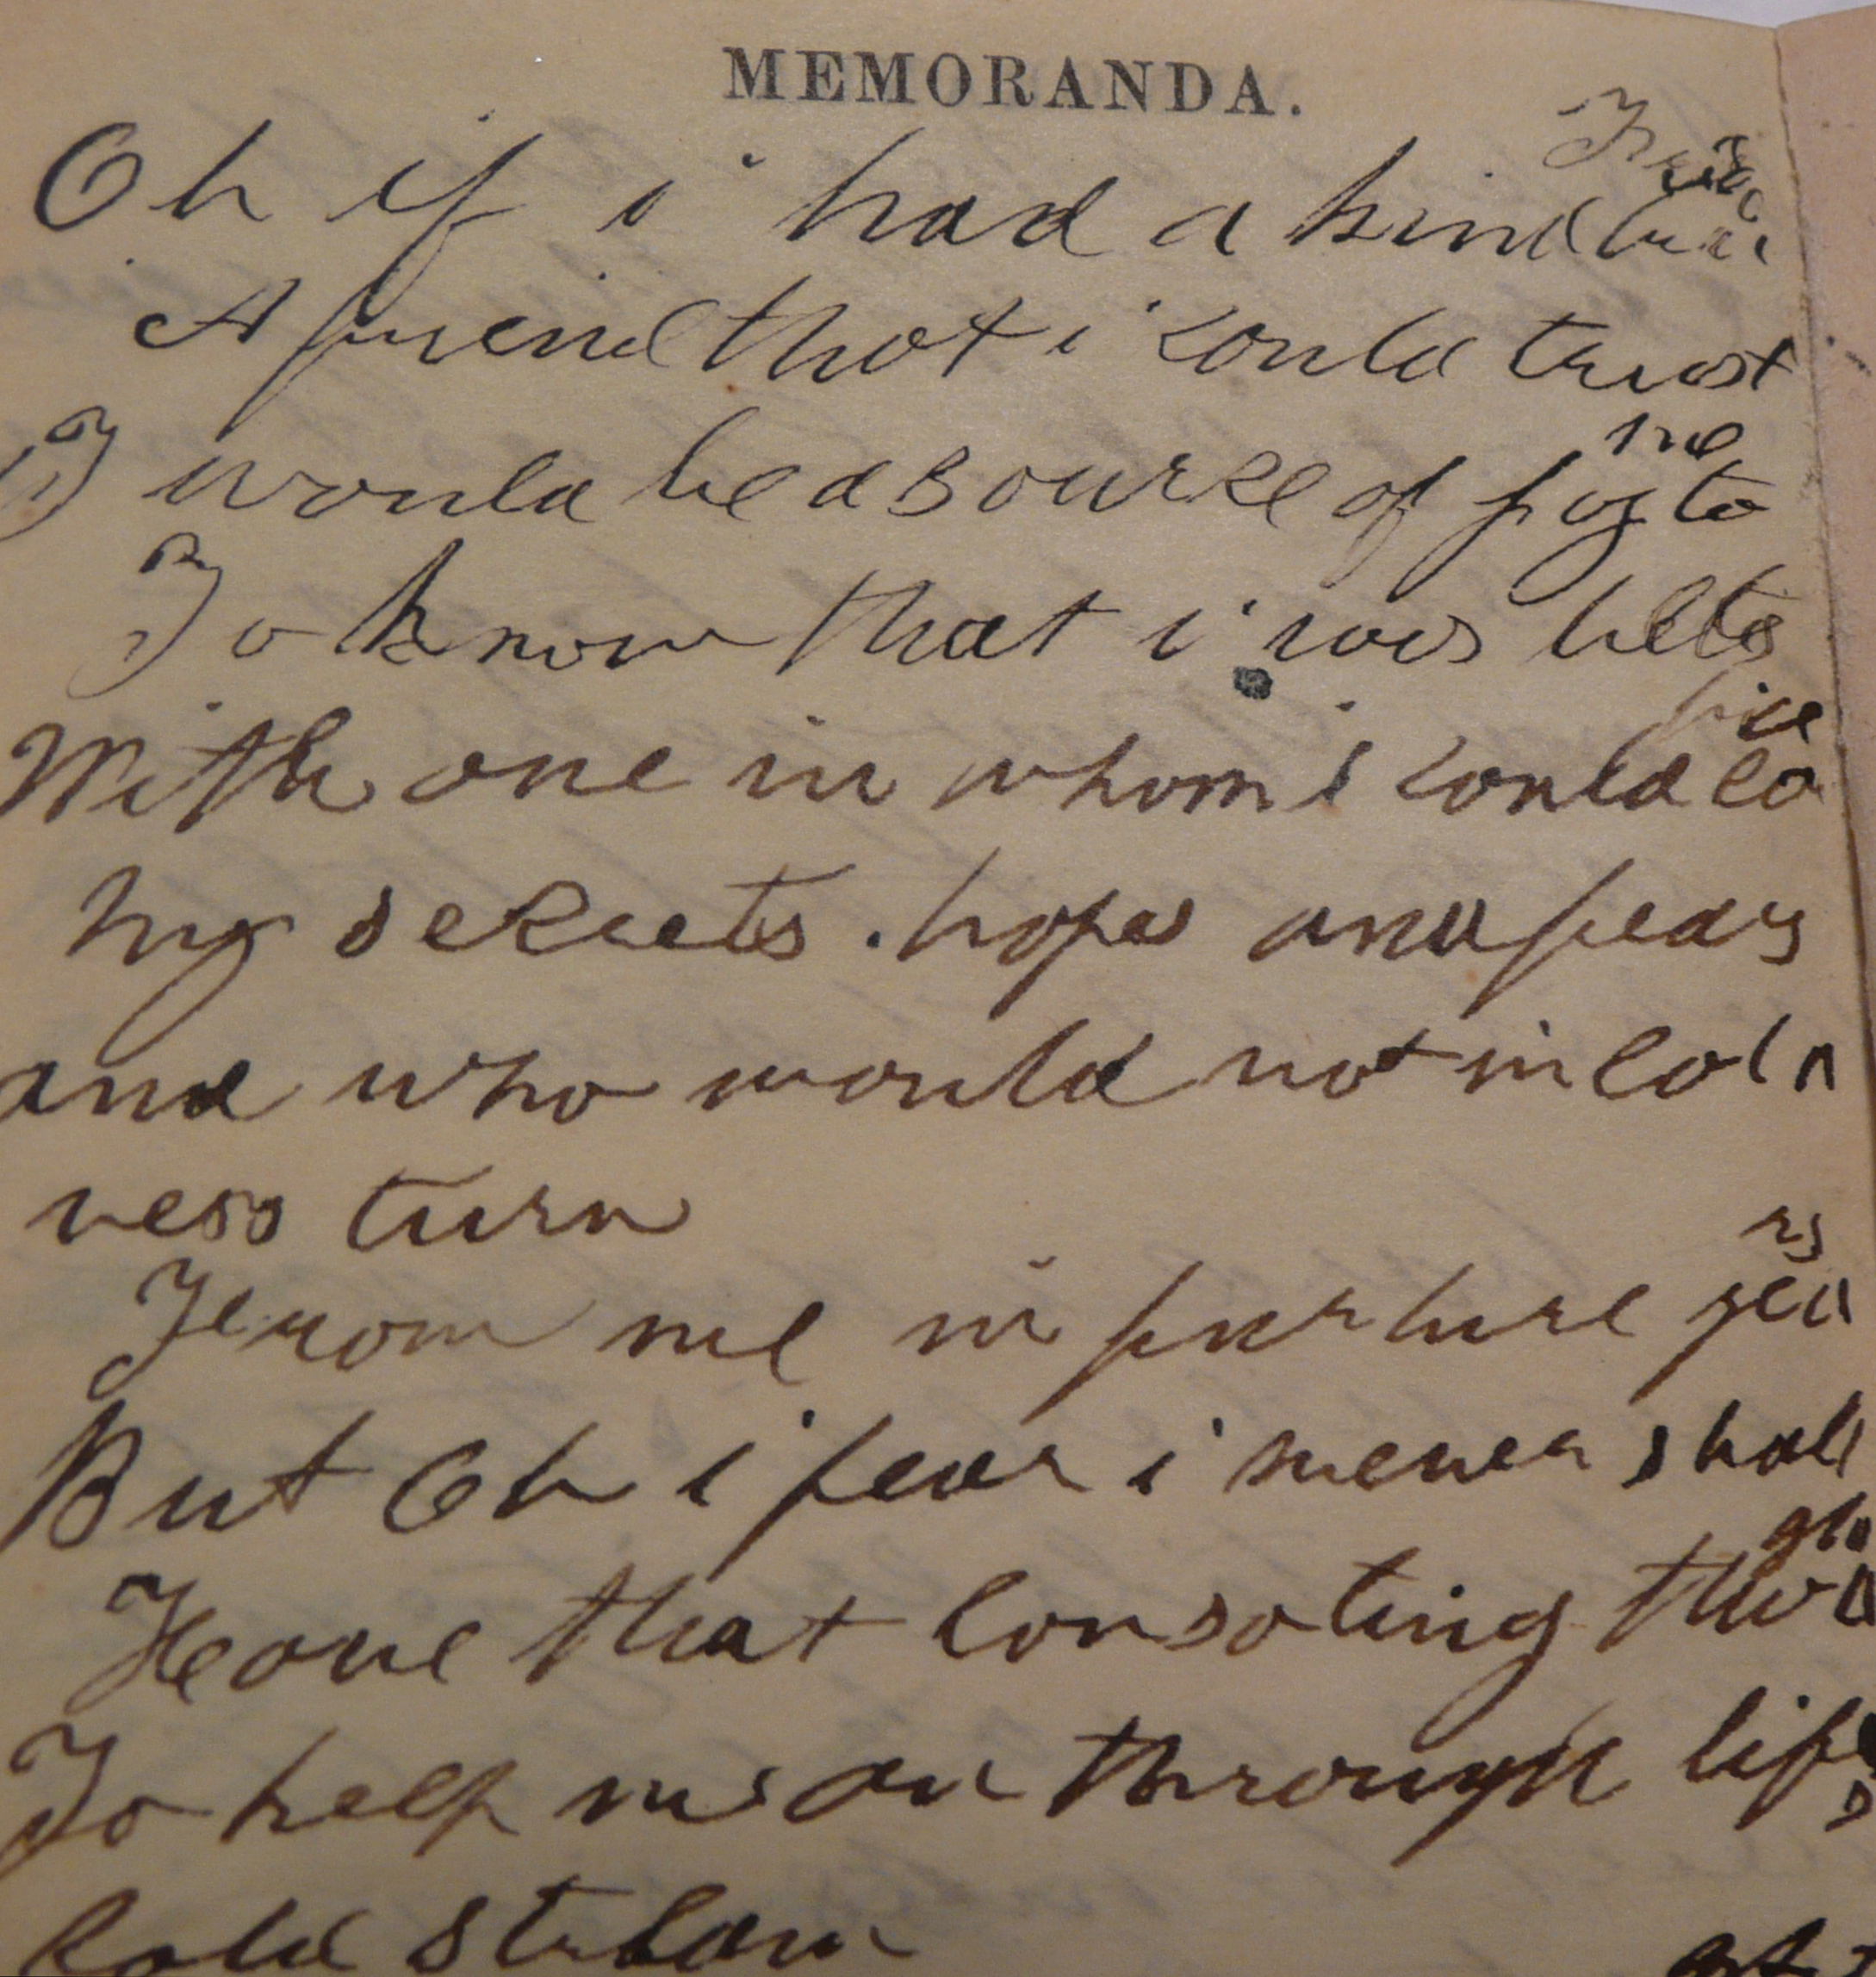 MEMORANDA.
Oh if i had a kind true Friend
A friend that i could trust
T would be a sourse of joy to me
To know that i was
With one in whom i could co
my secrets . hopes and fears
and who would not in cold n
ness turn
From me in furture years
But Oh i fear i never shall
Have that consoling though
To help me on through lifes
Cold stream